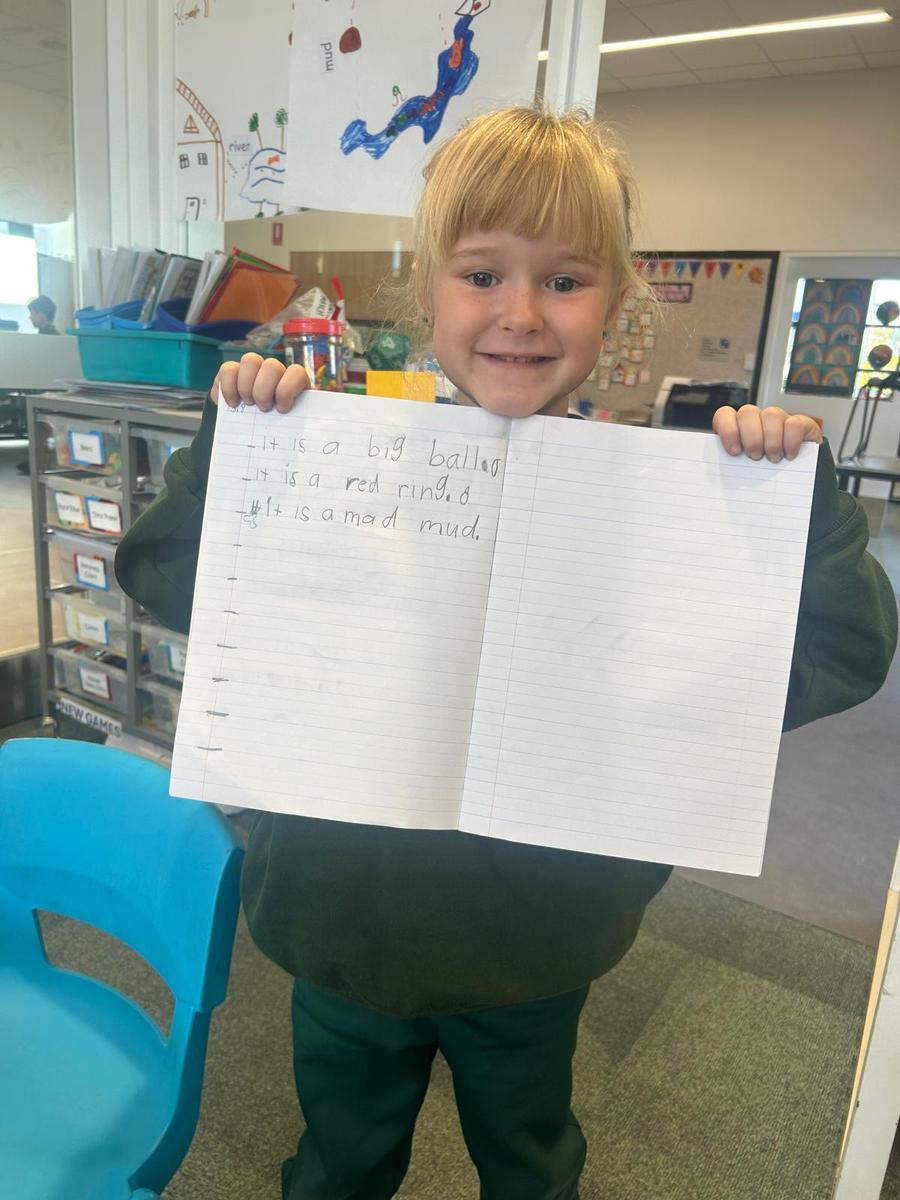 mud
river
It is a big ball.
It is a red ring.
It is a mad mud.
NEW GAMES